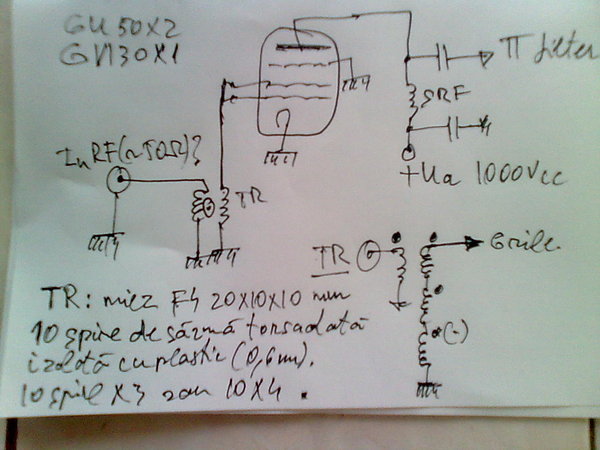 GU 50X2
GU130X1
Π filter
SRF
In RF(~50Ω)?
+Ua 1000Vcc
TR
TR
Grile
(~)
TR: miez F4 20X10X10 mm
10 spire de sârmă torsadată
izolată cu plastic (0,6mm).
10 spire X3 sau 10X4.